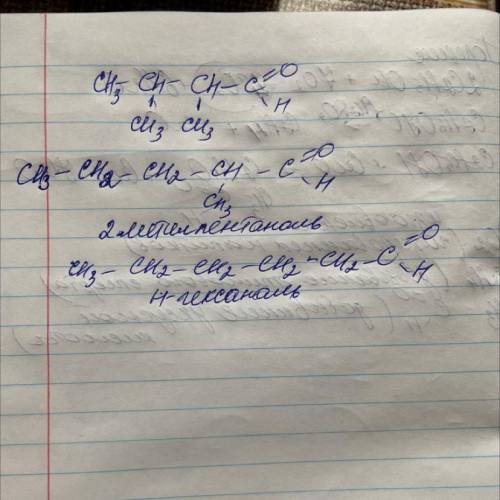 CH3 - CH - CH - C =O
H
CH3 CH3
CH3 - CH2 - CH2 - CH - C =O
H
CH3
2 метилпентаналь
CH3 - CH2 - CH2 - CH2 - CH2 - C =O
H
н-гексаналь